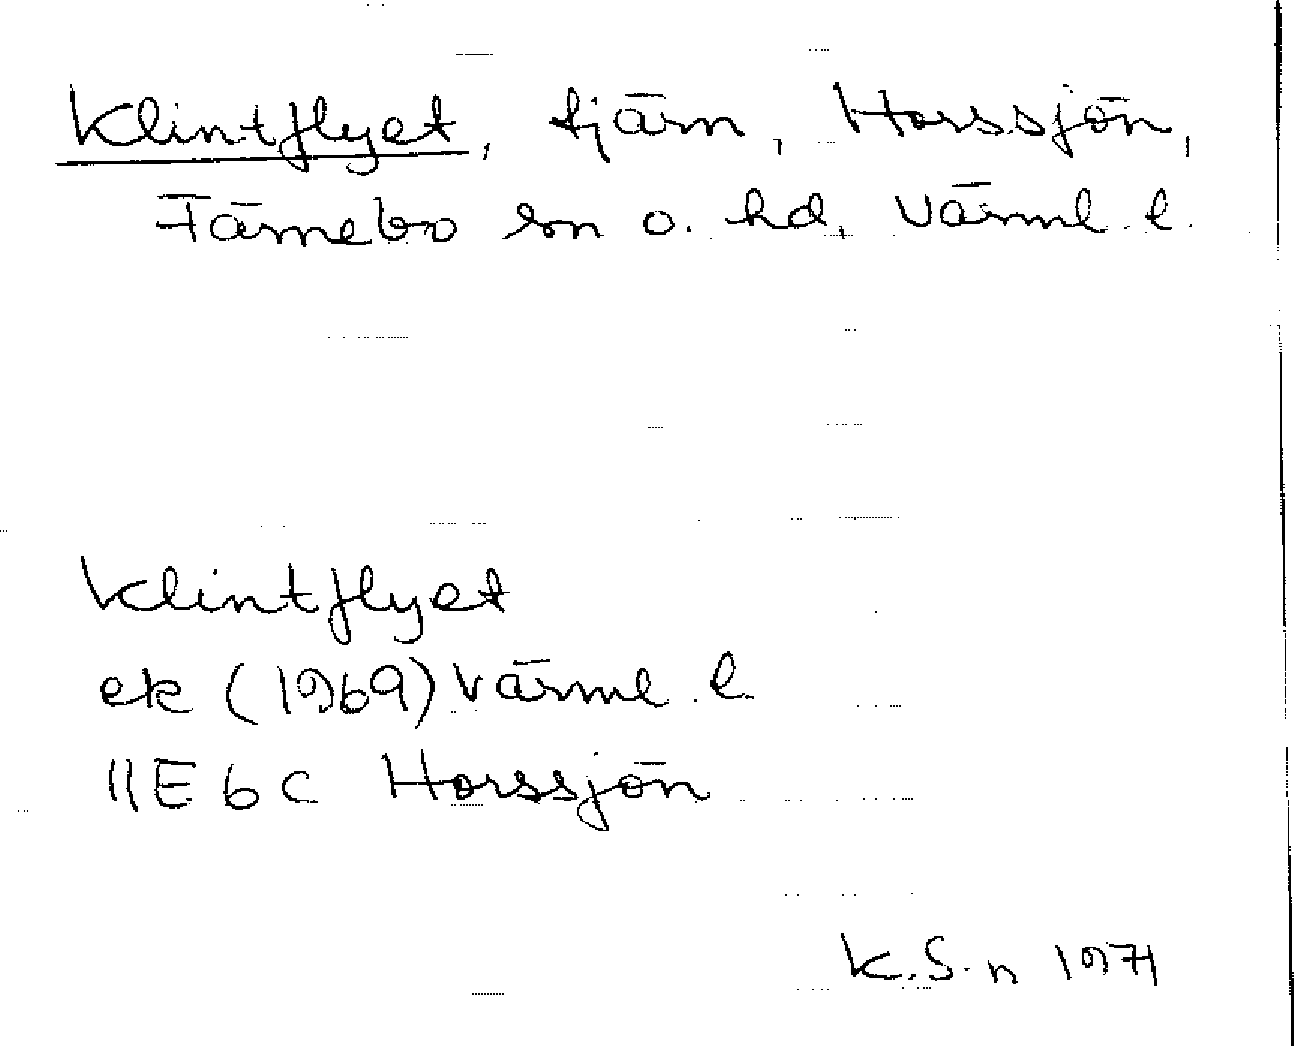 Klintflyet, tjärn, Horssjön,
Färnebo sn o. hd, Värml. l.
Klintflyet
ek (1969) Värml. l.
11E 6c Horssjön
K.S-n 1971